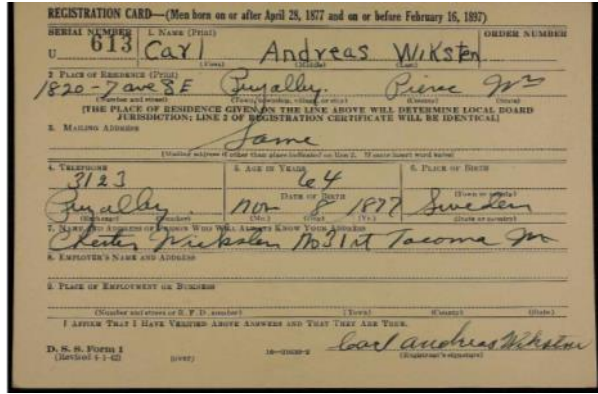 REGISTRATION CARD—(Men born on or after April 28, 1877 and on or before February 16, 1897)
SERIAL NUMBER 1. NAME (Print) ORDER NUMBER
U 613 Carl Andreas Wiksten
(First) (Middle) (Last)
2. PLACE OF RESIDENCE (Print)
1820-7 ave SE Puyallup. Pierce Wn
(Number and street) (Town, township, village, or city) (County) (State)
[THE PLACE OF RESIDENCE GIVEN ON THE LINE ABOVE WILL DETERMINE LOCAL BOARD
JURISDICTION; LINE 2 OF REGISTRATION CERTIFICATE WILL BE IDENTICAL]
3. MAILING ADDRESS
Same
[Mailing address if other than place indicated on line 2. If same insert word same]
4. TELEPHONE 5. AGE IN YEARS 6. PLACE OF BIRTH
3123 64
DATE OF BIRTH (Town or county)
Puyallup Nov 8 1877 Sweden
(Exchange) (Number) (Mo.) (Day) (Yr.) (State or country)
7. NAME AND ADDRESS OF PERSON WHO WILL ALWAYS KNOW YOUR ADDRESS
Chester Wicksten No 31 st Tacoma Wn
8. EMPLOYER'S NAME AND ADDRESS
9. PLACE OF EMPLOYMENT OR BUSINESS
(Number and street or R. F. D. number) (Town) (County) (State)
I AFFIRM THAT I HAVE VERIFIED ABOVE ANSWERS AND THAT THEY ARE TRUE.
D. S. S. Form 1
(Revised 4-1-42) (over) Carl Andreas Wiksten
(Registrant's signature)